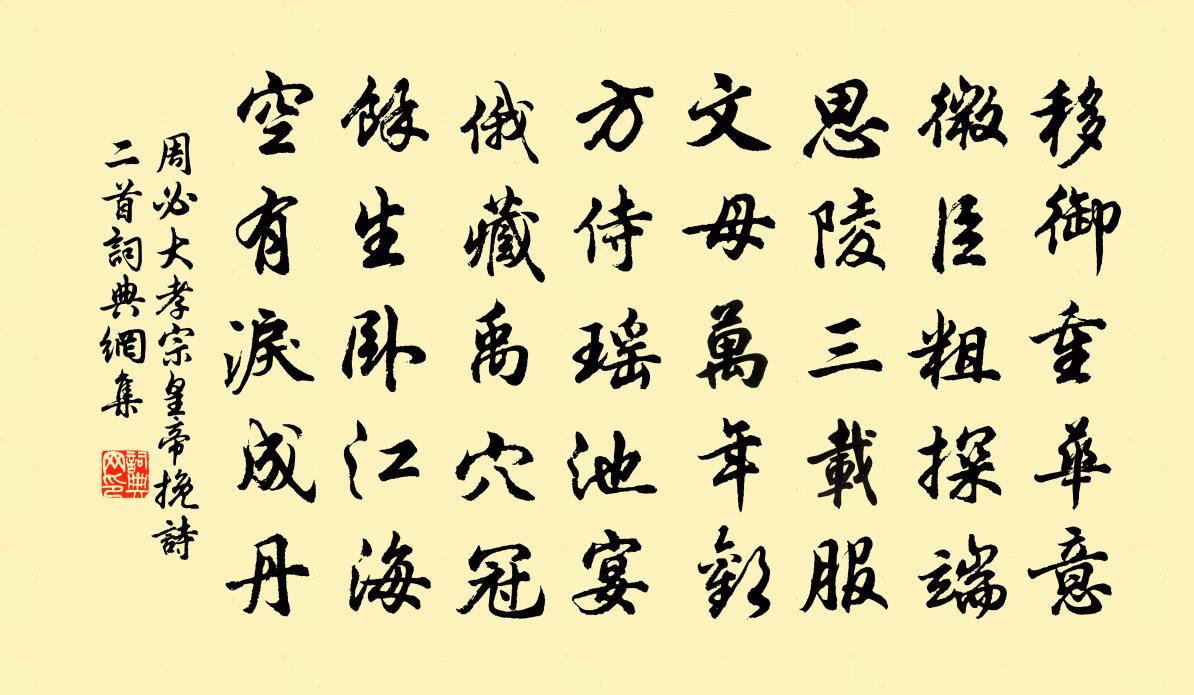 移御重華意
微臣粗探端
思陵三載服
文母萬年歡
方侍瑶池宴
俄藏禹穴冠
餘生卧江海
空有淚成丹
周必大孝宗皇帝挽詩
二首詞典網集
詞典网印